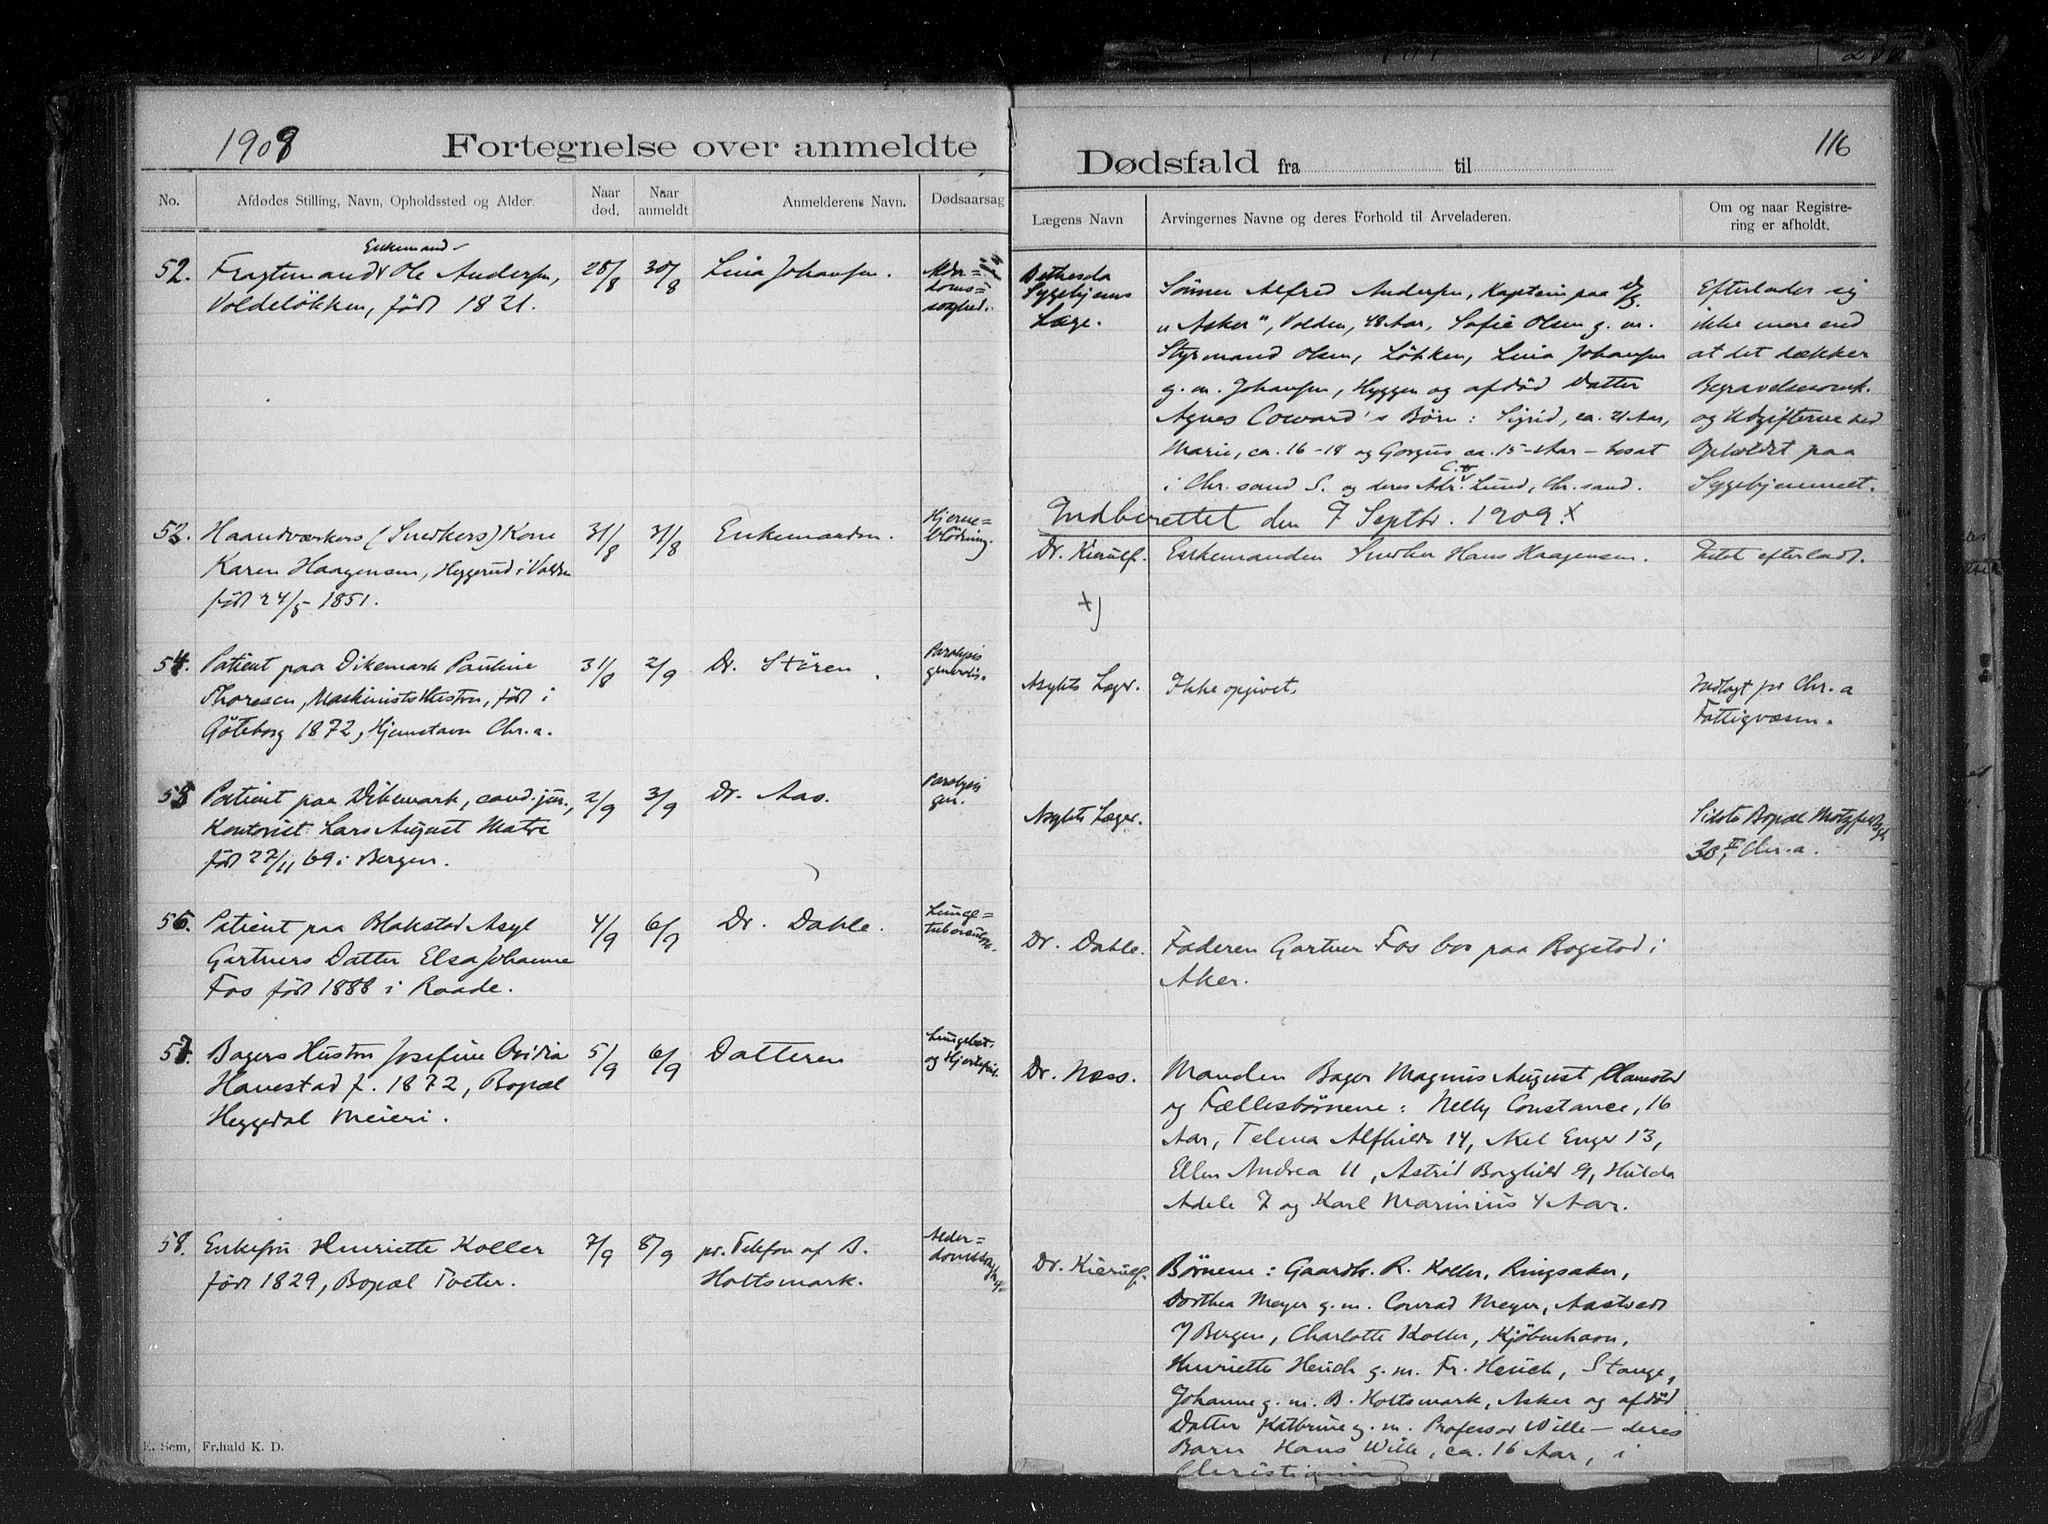 1909
Fortegnelse over anmeldte
Dødsfald fra til
116
No.
Afdødes Stilling, Navn, Opholdssted og Alder.
Naar død.
Naar anmeldt
Anmelderens Navn.
Dødsaarsag
Lægens Navn
Arvingernes Navne og deres Forhold til Arveladeren.
Om og naar Registre-
ring er afholdt.
Enkemand
52. Fragtemand Ole Andersen,
Voldeløkken, født 1821.
28/8
30/8
Lina Johansen.
Alder=
doms=
svaghed.
Bethesda
Sygehjems
Læge.
Sönner Alfred Andersen, Kaptein paa D/S.
"Asker", Volden, 48 Aar, Sofie Olsen g. m.
Styrmand Olsen, Løkken, Lina Johansen
g. m. Johansen, Hyggen og afdød Datter
Agnes Coward's Børn: Sigrid, ca. 21 Aar,
Marie, ca. 16-18 og Gorgus ca. 15 Aar - bosat
i Chr.sand S. og deres Adr. Lund, Chr.sand.
Efterlader sig
ikke mere end
at det dækker
Begravelsesomk.
og Udgifterne ved
Opholdet paa
Sygehjemmet.
Indberettet den 7 Septbr. 1909. X
53. Haandværkers (Snedkers) Kone
Karen Haagensen, Heggerud i Volden
født 24/5 1851.
31/8
31/8
Enkemanden.
Hjerne=
blödning.
Dr. Kierulf.
Enkemanden Snedker Hans Haagensen.
Intet efterladt.
+)
54. Patient paa Dikemark Pauline
Thoresen, Maskinists Hustru, født i
Göteborg 1872, Hjemstavn Chr.a.
31/8
2/9
Dr. Stören.
Paralysis
generalis.
Asylets Læger.
Ikke opgivet.
Indlagt pr Chr.a
Fattigvæsen.
55 Patient paa Dikemark, cand. jur.,
Kontorist Lars August Matre
født 27/11 69 i Bergen.
2/9
3/9
Dr. Aas.
Paralysis
gen.
Asylets Læger.
Sidste Bopæl
30, II Chr.a.
56. Patient paa Blakstad Asyl
Gartners Datter Elsa Johanne
Fos født 1888 i Raade.
4/9
6/9
Dr. Dahle.
Lunge=
tuberculose.
Dr. Dahle.
Faderen Gartner Fos bor paa Bogstad i
Aker.
57. Bagers Hustru Josefine Ovidia
Hanestad f. 1872, Bopæl
Heggedal Meieri.
5/9
6/9
Datteren
og Hjertefeil.
Dr. Næss.
Manden Bager Magnus August Hanestad
og Fællesbørnene: Nelly Constance, 16
Aar, Telma Alfhilde 14, Aksel Enger 13,
Ellen Andrea 11, Astrid Borghild 9, Hulda
Adele 7 og Karl Marinius 4 Aar.
58. Enkefru Henriette Koller
født 1829, Bopæl Tveter.
7/9
8/9
pr. Telefon af B.
Holtsmark.
Alder-
Dr. Kierulf.
Børnene: Gaardb. R. Koller, Ringsaker,
Dorthea Meyer g. m. Conrad Meyer, Aastvedt
v/ Bergen, Charlotte Koller, Kjöbenhavn,
Henriette Heuch g. m. Fr. Heuch, Stange,
Johanne g. m. B. Holtsmark, Asker og afdöd
Datter Kathrine g. m. Professor Wille - deres
Barn Hans Wille, ca. 16 Aar, i
Christiania
E. Sem, Fr.hald K. D.